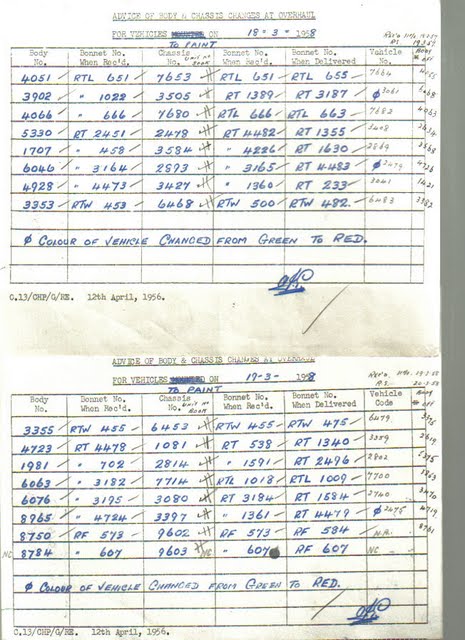 ADVICE OF BODY & CHASSIS CHANGES AT OVERHAUL
FOR VEHICLES MOUNTED ON 18-3- 1958
TO PAINT
Body No. Bonnet No. When Rec'd. Chassis No. UNIT NO BOOK Bonnet No. When Rec'd. Bonnet No. When Delivered Vehicle No. BODY OFF
4051 RTL 651 7653 RTL 651 RTL 655 7664 4055
3902 " 1022 3505 RT 1389 RT 3187 ø 3061
4066 " 666 7680 RTL 666 RTL 663 7683 4063
5330 RT 2451 2478 RT 4482 RT 1355
1707 " 458 3584 " 4226 RT 1630 2869
6046 " 3164 2893 " 3165 RT 4483 ø 2479 4726
4928 " 4473 3427 " 1360 RT 233 3041 1421
3353 RTW 453 6468 RTW 500 RTW 482. 6483 3382
ø COLOUR OF VEHICLE CHANGED FROM GREEN TO RED.
C.13/CHP/G/RE. 12th April, 1956.
ADVICE OF BODY & CHASSIS CHANGES AT OVERHAUL
FOR VEHICLES MOUNTED ON 17-3- 1958
TO PAINT
Body No. Bonnet No. When Rec'd. Chassis No. UNIT NO BOOK Bonnet No. When Rec'd. Bonnet No. When Delivered Vehicle Code BODY OFF
3355 RTW 455 6453 RTW 455 RTW 475 6479 3375
4723 RT 4478 1081 RT 538 RT 1340 3359
1981 " 702 2814 " 1591 RT 2496 2802 5375
6063 " 3182 7714 RTL 1018 RTL 1009 7700
6076 " 3195 3080 RT 3184 RT 1584 2740
8965 " 4724 3397 " 1361 RT 4479 ø 2475 4719
8750 RF 573 9602 RF 573 RF 584 N.A. 8761
NC 8784 " 607 9603 NC " 607 RF 607 NC
ø COLOUR OF VEHICLE CHANGED FROM GREEN TO RED.
C.13/CHP/G/RE. 12th April, 1956.